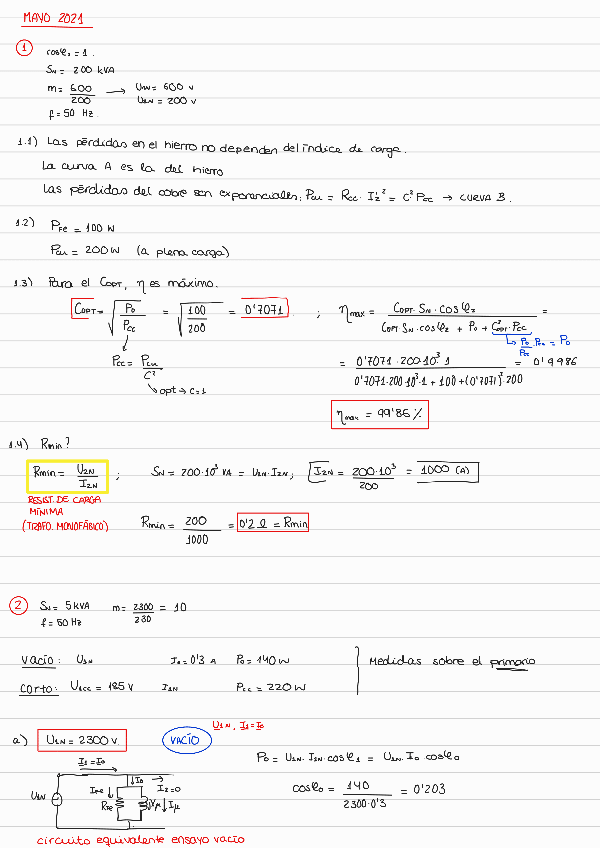 MAYO 2021
1
cosφ₂ = 1.
SN = 200 kVA
m = 600/200 → U1N = 600 V
U2N = 200 V
f = 50 Hz.
1.1) Las pérdidas en el hierro no dependen del índice de carga.
La curva A es la del hierro
Las pérdidas del cobre son exponenciales: Pcu = Rcc · I₂'² = C² Pcc → CURVA B.
1.2) PFe = 100 W
Pcu = 200 W (a plena carga)
1.3) Para el COPT, η es máximo.
COPT = √(P0/Pcc) = √(100/200) = 0'7071 ; ηmax = (COPT · SN · cosφ₂)/(COPT SN · cosφ₂ + P0 + C²OPT · Pcc) =
↳ P0/Pcc · Pcc = P0
Pcc = Pcu/C²
↘ opt → C=1
= (0'7071 · 200·10³ · 1)/(0'7071·200·10³·1 + 100 + (0'7071)²·200) = 0'9986
ηmax = 99'86 %
1.4) Rmin?
Rmin = U2N/I2N ; SN = 200·10³ VA = U2N · I2N ; I2N = 200·10³/200 = 1000 (A)
RESIST. DE CARGA
MÍNIMA
(TRAFO. MONOFÁSICO)
Rmin = 200/1000 = 0'2 Ω = Rmin
2
SN = 5 kVA m = 2300/230 = 10
f = 50 Hz
Vacío: U1N I0 = 0'3 A P0 = 140 W
Corto: U1cc = 185 V I1N Pcc = 220 W
Medidas sobre el primario
a) U1N = 2300 V. VACÍO U1N, I1 = I0
P0 = U1N · I1N · cosφ1 = U1N · I0 · cosφ0
cosφ0 = 140/(2300·0'3) = 0'203
I1 = I0
I0
I2 = 0
U1N
IFe
RFe
Xμ
Iμ
circuito equivalente ensayo vacío